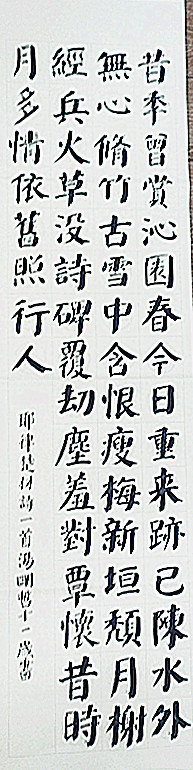 昔秊曾賞沁園春今日重来跡已陳水外
無心脩竹古雪中含恨瘦梅新垣頹月榭
經兵火草没詩碑覆劫塵羞對覃懷昔時
月多情依舊照行人
耶律楚材詩一首 十一歲書